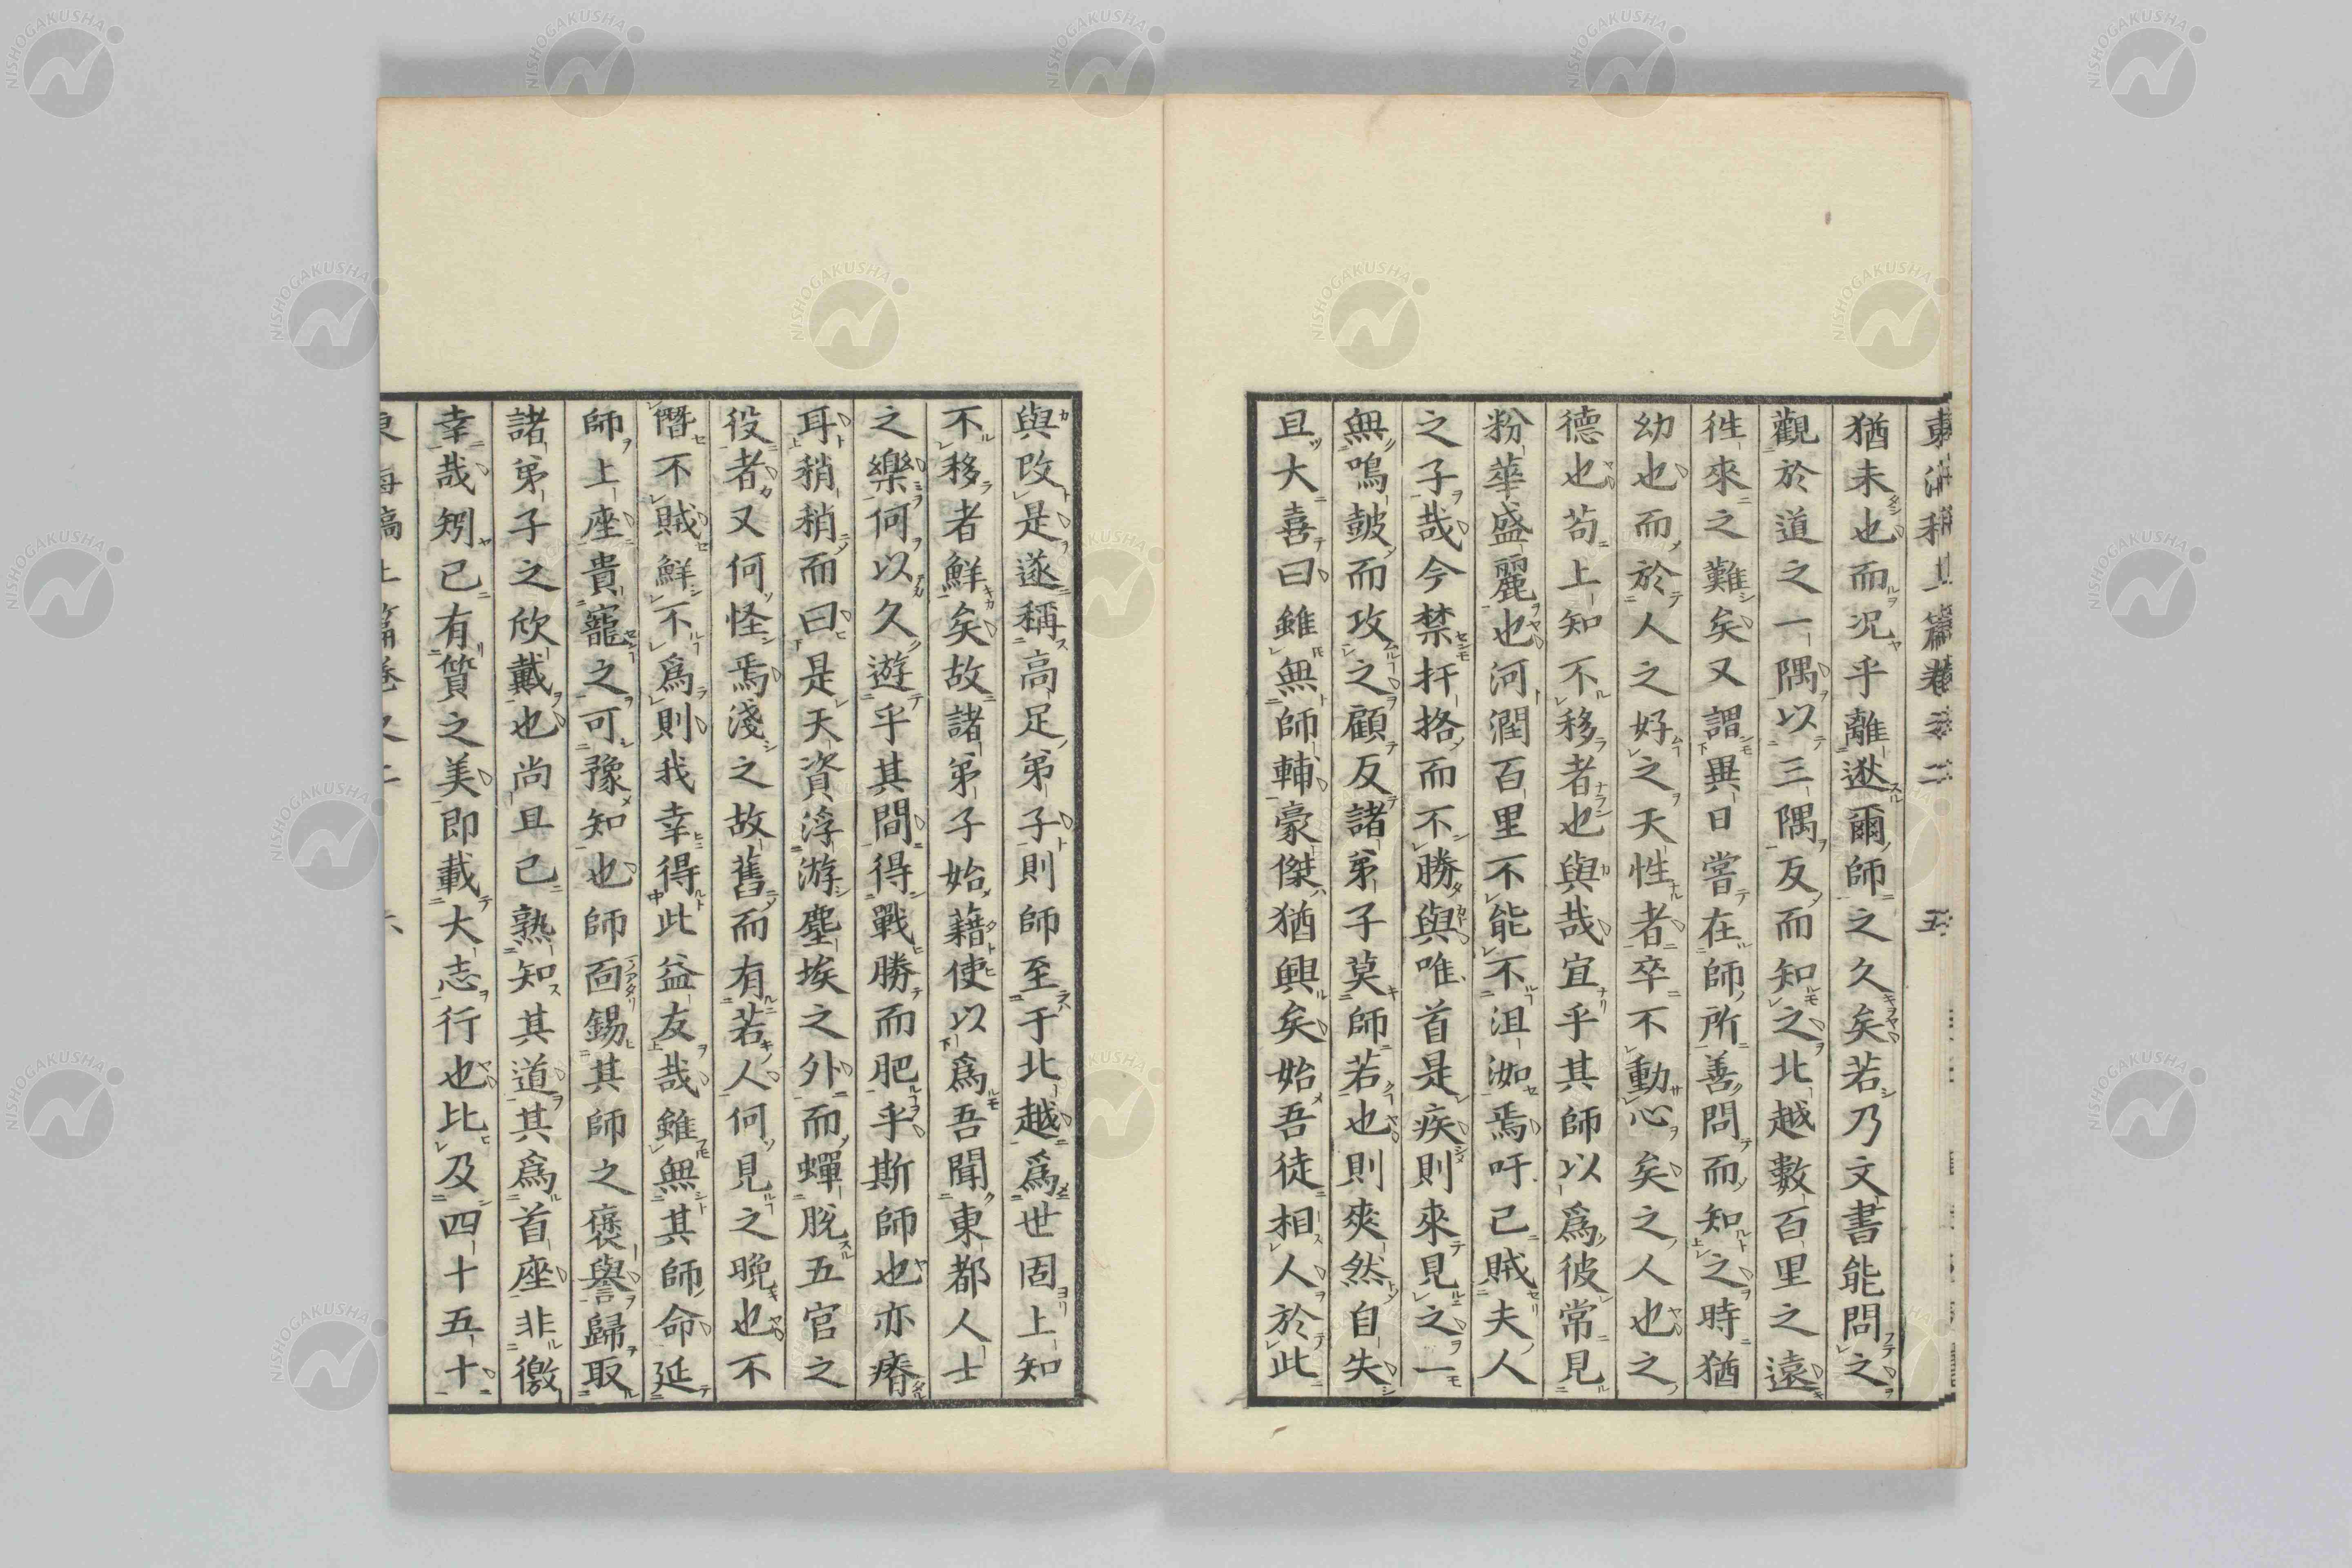 猶未也而况乎離逖爾師之久矣若乃文書能問之
觀於道之一隅以三隅反而知之北越數百里之遠
徃來之難矣又謂異日嘗在師所善問而知之時猶
幼也而於人之好之天性者卒不動心矣之人也之
德也苟上知不移者也與哉宜乎其師以爲彼常見
粉華盛麗也河潤百里不能不沮洳焉吁己賊夫人
之子哉今禁扞挌而不勝與唯首是疾則來見之一
無鳴皷而攻之顧反諸弟子莫師若也則爽然自失
且大喜曰雖無師輔豪傑猶興矣始吾徒相人於此
與改是遂稱高足弟子則師至于北越爲世固上知
不移者鮮矣故諸弟子始藉使以爲吾聞東都人士
之樂何以久遊乎其間得戰勝而肥乎斯師也亦瘠
耳稍稍而曰是天資浮游塵埃之外而蟬脫五官之
役者又何怪焉淺之故舊而有若人何見之晚也不
僭不賊鮮不爲則我幸得此益友哉雖無其師命延
師上座貴寵之可豫知也師面錫其師之襃譽歸取
諸弟子之欣戴也尚且己熟知其道其爲首座非徼
幸哉矧己有質之美即載大志行也比及四十五十
NISHOGAKUSHA